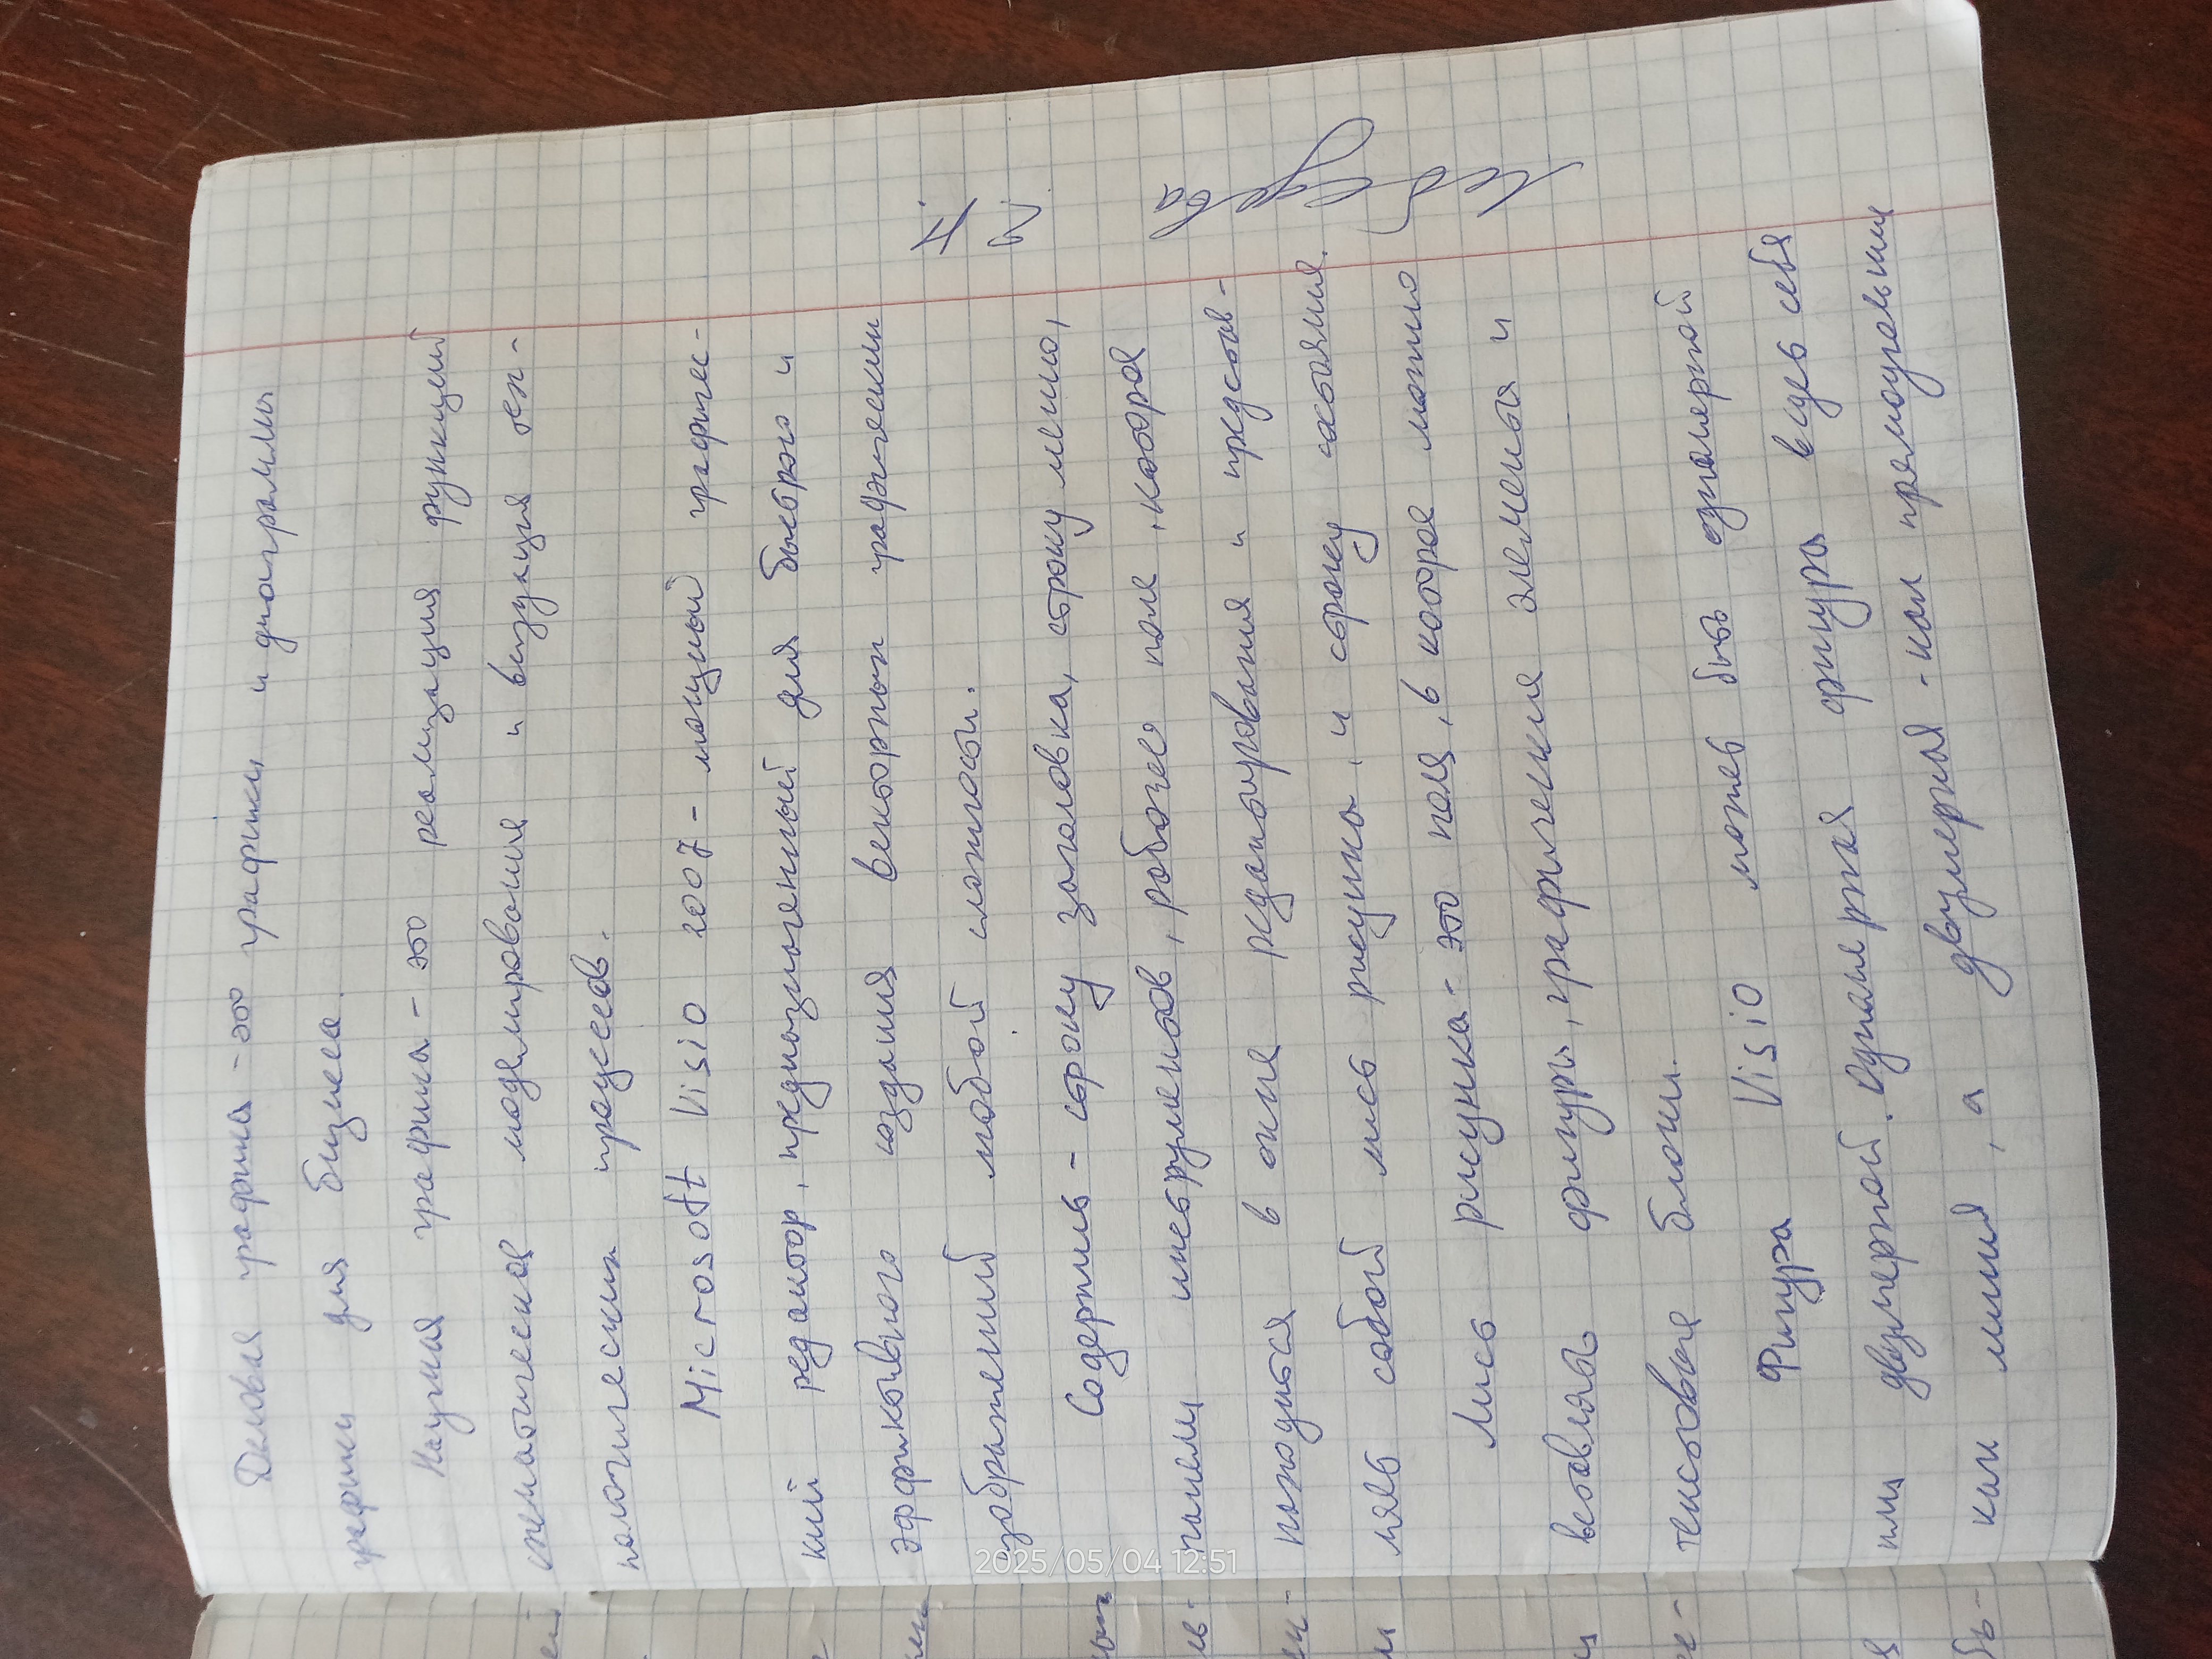 Деловая графика - это графики и диаграммы
графики для бизнеса.
Научная графика - это реализация функций
схематическая моделирования и визуация
нологических процессов.
Microsoft Visio 2007 - мощный графичес-
кий редактор, предназначенный для быстрого и
эффективного создания векторных
изображений любой сложности.
Содержит - строку заголовка, строку меню,
панели инструментов, рабочее поле, которая
находится в окне редактирования и представ-
ляет собой лист рисунка, и строку состояния.
Лист рисунка - это поле, в которое можно
вставлять фигуры, графические элементы и
текстовые блоки.
Фигура Visio может быть одномерной
или двумерной. Одномерная фигура ведет себя
как линия, а двумерная - как прямоугольник
2025/05/04 12:51